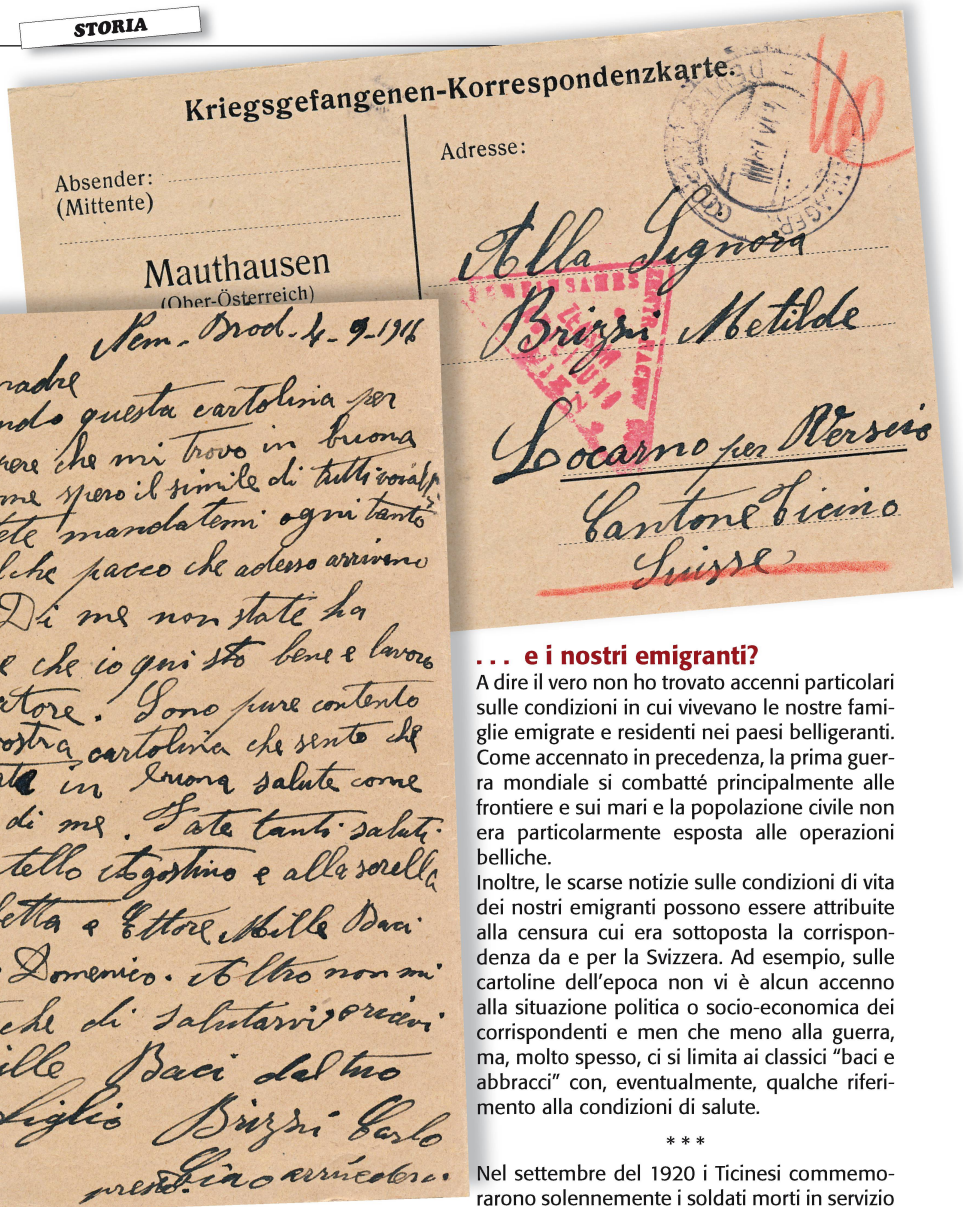 STORIA
Kriegsgefangenen-Korrespondenzkarte.
Absender:
(Mittente)
Mauthausen
(Ober-Österreich)
Adresse:
Alla Signora
Brizzi Metilde
Locarno per Verscio
Cantone Ticino
Suisse
Nem. Brod. 4-9-1916
madre
ndo questa cartolina per
pere che mi trovo in buona
me spero il simile di tutti voi
ete mandatemi ogni tanto
lche pacco che adesso arrivano
Di me non state ha
e che io qui sto bene e lavoro
atore. Sono pure contento
vostra cartolina che sento che
ate in buona salute come
di me. Fate tanti saluti
tello Agostino e alla sorella
letta e Ettore Mille Baci
Domenico. Altro non mi
che di salutarvi e ricevi
ille Baci dal tuo
figlio Brizzi Carlo
presto. Ciao arrivederci.
. . . e i nostri emigranti?
A dire il vero non ho trovato accenni particolari
sulle condizioni in cui vivevano le nostre fami-
glie emigrate e residenti nei paesi belligeranti.
Come accennato in precedenza, la prima guer-
ra mondiale si combatté principalmente alle
frontiere e sui mari e la popolazione civile non
era particolarmente esposta alle operazioni
belliche.
Inoltre, le scarse notizie sulle condizioni di vita
dei nostri emigranti possono essere attribuite
alla censura cui era sottoposta la corrispon-
denza da e per la Svizzera. Ad esempio, sulle
cartoline dell'epoca non vi è alcun accenno
alla situazione politica o socio-economica dei
corrispondenti e men che meno alla guerra,
ma, molto spesso, ci si limita ai classici "baci e
abbracci" con, eventualmente, qualche riferi-
mento alla condizioni di salute.
* * *
Nel settembre del 1920 i Ticinesi commemo-
rarono solennemente i soldati morti in servizio